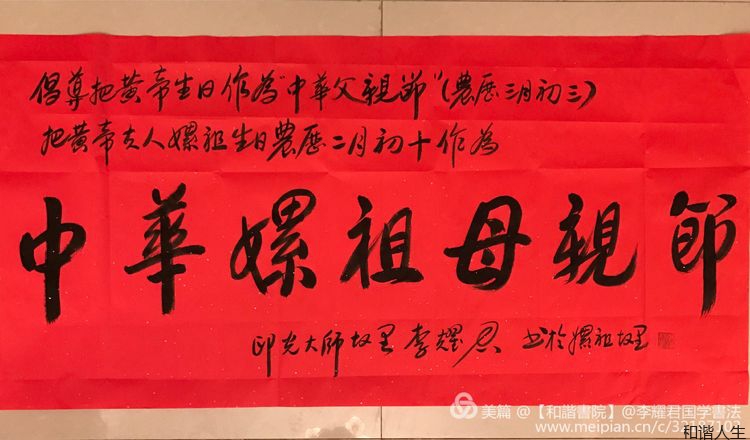 倡尊把黄帝生日作為“中華父親節”(農历三月初三)
把黄帝夫人嫘祖生日農历二月初十作為
中華嫘祖母親節
印光大师故里 李耀君 书於嫘祖故里
美篇 @【和諧書院】@李耀君国学書法
www.meipian.cn/c/
和谐人生